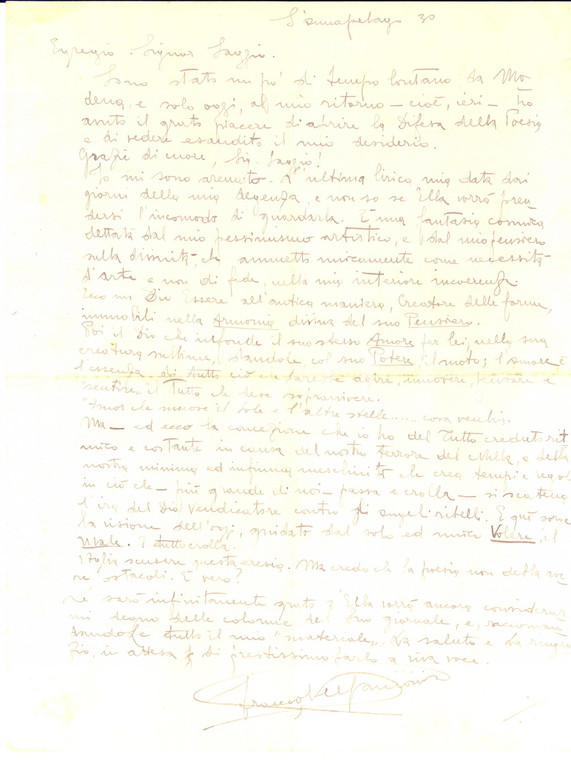 S'annapelago 30
Egregio Signor Saggio.
Sono stato un po' di tempo lontano da Mo-
dena, e solo oggi, al mio ritorno – cioè, ieri – ho
avuto il grato piacere di aprire la Difesa della Poesia
e di vedere esaudito il mio desiderio.
Grazie di cuore, Sig. Saggio!
Io mi sono arenato. L'ultima lirica mia data dai
giorni della mia degenza, e non so se Ella vorrà pren-
dersi l'incomodo di guardarla. È una fantasia cosmica
dettata dal mio pessimismo artistico, e dal mio pensiero
sulla divinità che ammetto unicamente come necessità
d'arte e non di fede, nella mia interiore
Ecco un Dio Essere all'antica maniera, Creatore delle forme,
immobili nella Armonia divina del suo Pensiero.
Poi il Dio che infonde il suo stesso Amore per lei, nella sua
creatura sublime, dandole, col suo Potere, il moto; l'amore è
l'essenza di tutto ciò che
sentire, il Tutto che deve sopravvivere.
"Amor che muove il sole e l'altre stelle"..... cosa vecchia.
Ma – ed ecco la concezione che io ho del Tutto creduto rit-
mico e costante in causa del nostro terrore del Nulla, e della
nostra minima ed infima meschinità che crea tempi e regole
in ciò che – più grande di noi – passa e crolla – si scatena
l'ira del Dio vendicatore contro gli angeli ribelli. E qui sorge
la visione dell'oggi, guidato dal solo ed unico Volere, il
Male. E tutto crolla.
Voglia scusare questa eresia. Ma credo che la poesia non debba avere
ostacoli. È vero?
Le sarò infinitamente grato s'Ella vorrà ancora considerar-
mi degno delle colonne del Suo giornale, e, raccoman-
dandole tutto il mio "materiale", La saluto e La ringra-
zio, in attesa di prestissimo farlo a viva voce.